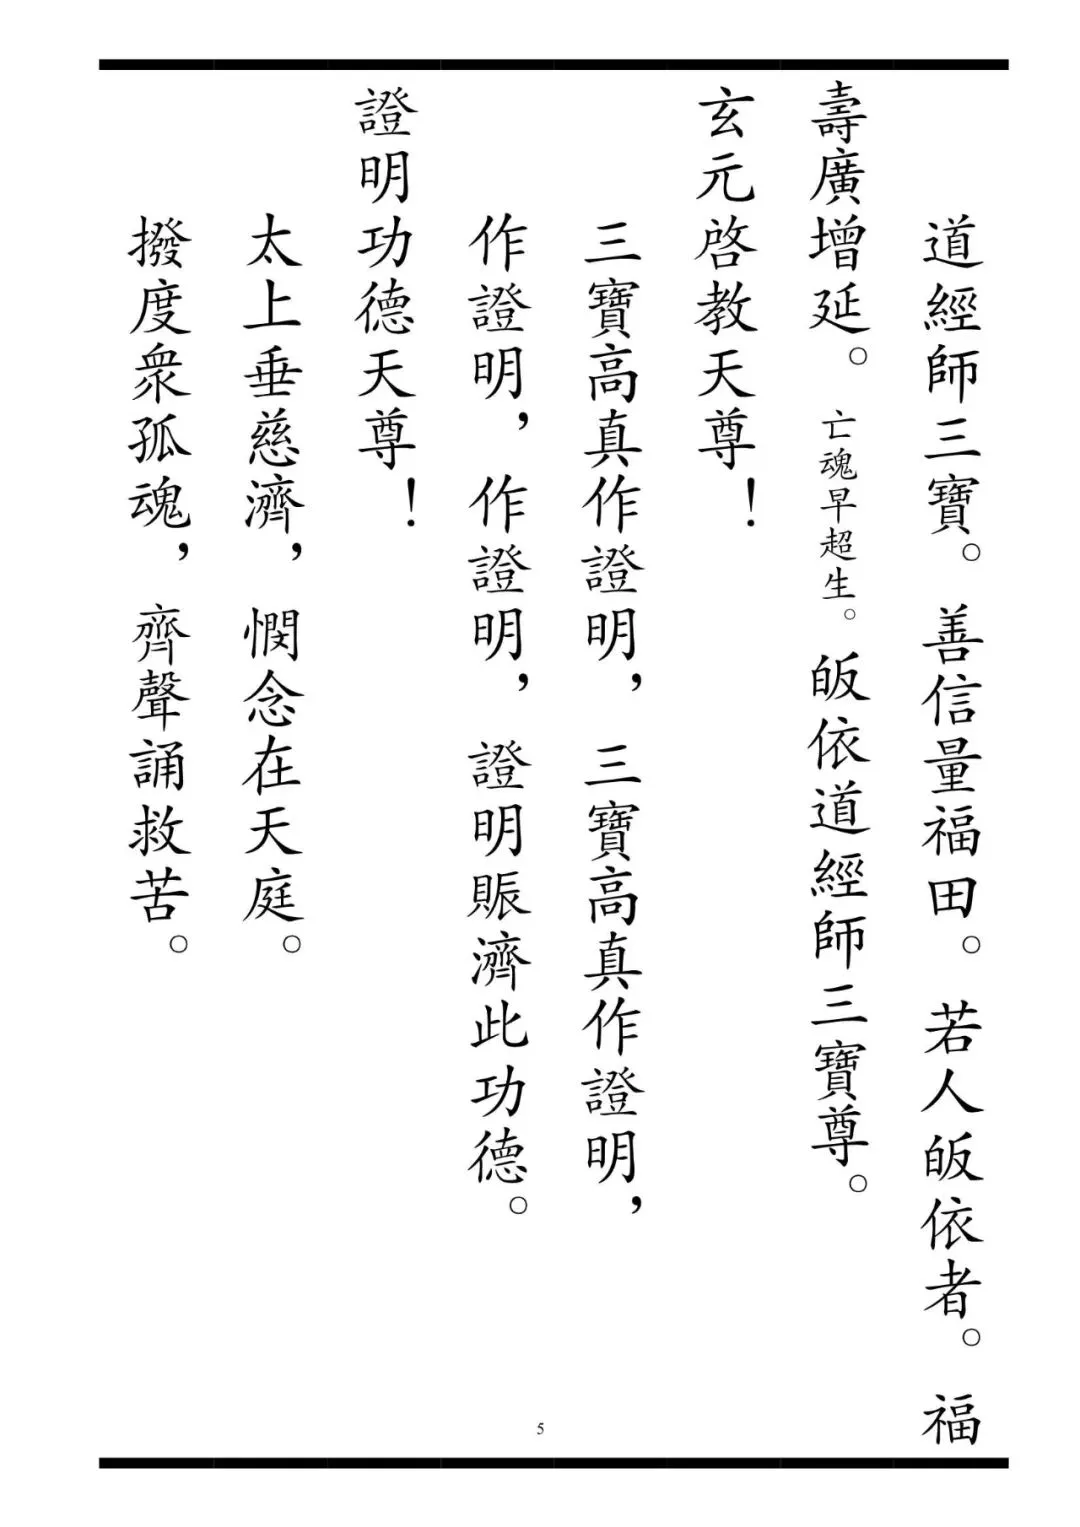 道經師三寶。善信量福田。若人皈依者。福
壽廣增延。亡魂早超生。皈依道經師三寶尊。
玄元啓教天尊！
三寶高真作證明，三寶高真作證明，
作證明，作證明，證明賑濟此功德。
證明功德天尊！
太上垂慈濟，憫念在天庭。
撥度衆孤魂，齊聲誦救苦。
5